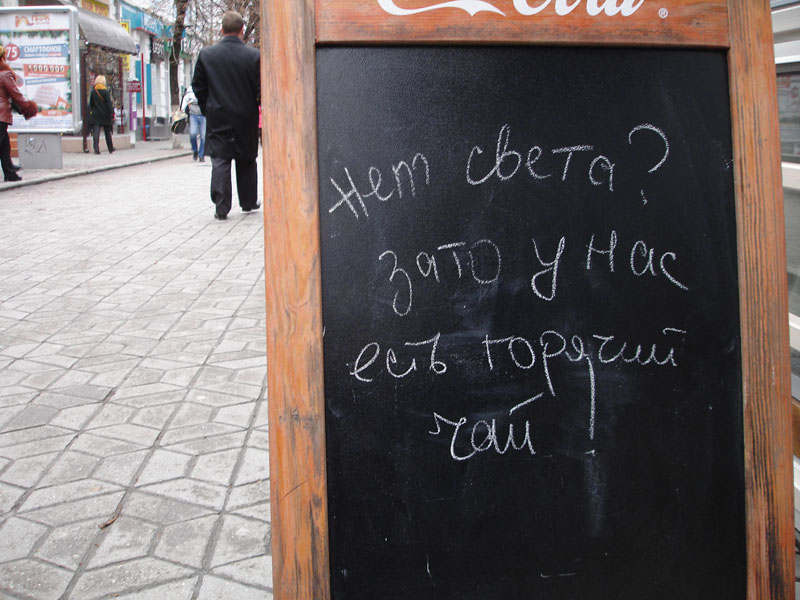 Cola ®
нет света?
зато у нас
есть горячий
чай!
75
1000 000